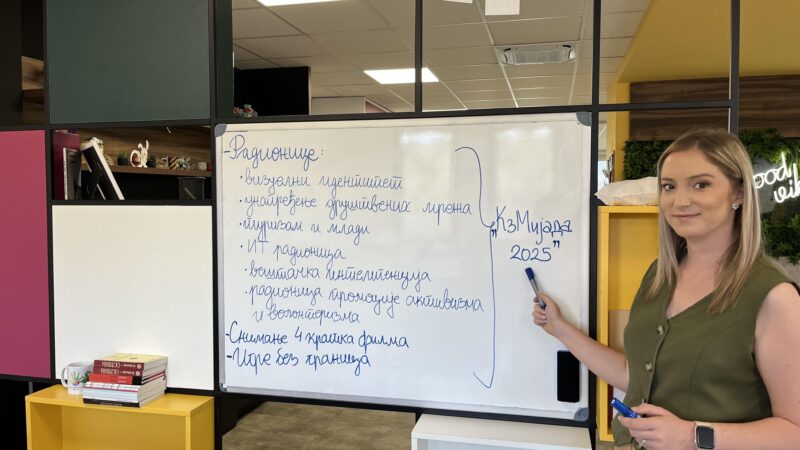 -Радионице:
• визуелни идентитет
• унапређење друштвених мрежа
• туризам и млади
• ИТ радионица
• вештачка интелигенција
• радионица промоције активизма
и волонторизма
-Снимање 4 кратка филма
-Игре без граница
„КзМијада
2025"